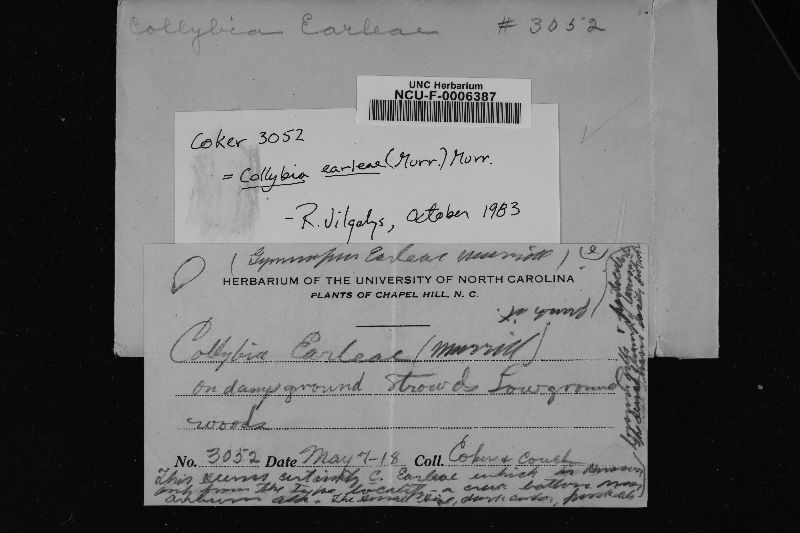 Collybia Earleae # 3052
UNC Herbarium
NCU-F-0006387
Coker 3052
= Collybia earleae (Murr.) Murr.
- R. Vilgalys, October 1983
(Gymnopus Earleae Murrill)
HERBARIUM OF THE UNIVERSITY OF NORTH CAROLINA
PLANTS OF CHAPEL HILL, N. C.
Collybia Earleae (Murrill)
On damp ground Strowds Lowground
woods
No. 3052 Date May 4-18 Coll. Coker & Couch
This seems certainly C. Earleae which is known
only from the type locality - a creek bottom near
Auburn Ala. The small size, dark color,